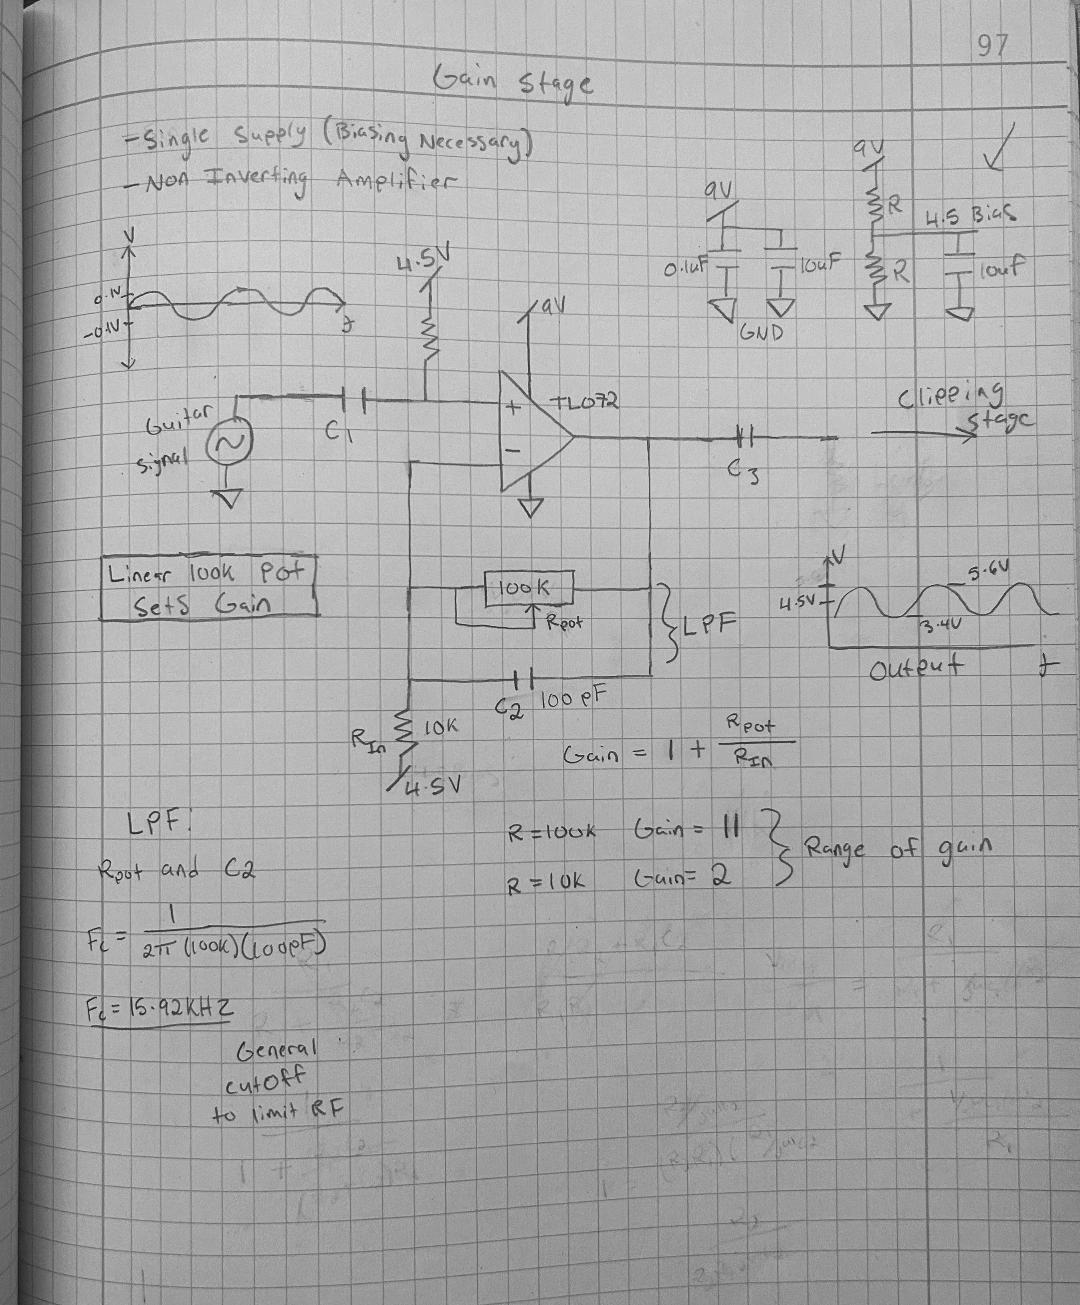 97
Gain Stage
- Single Supply (Biasing Necessary)
- Non Inverting Amplifier
9V
R
4.5 Bias
R
10uF
9V
0.1uF
10uF
GND
V
0.1V
-0.1V
t
4.5V
9V
+
TL072
-
Guitar
Signal
C1
C3
Clipping
Stage
Linear 100k Pot
Sets Gain
100K
Rpot
LPF
C2 100pF
RIn
10K
4.5V
V
4.5V
5.6V
3.4V
Output
t
Gain = 1 + Rpot / RIN
R=100k Gain = 11
R=10K Gain= 2
Range of gain
LPF:
Rpot and C2
Fc = 1 / 2π (100k)(100pF)
Fc = 15.92KHZ
General
cutoff
to limit RF